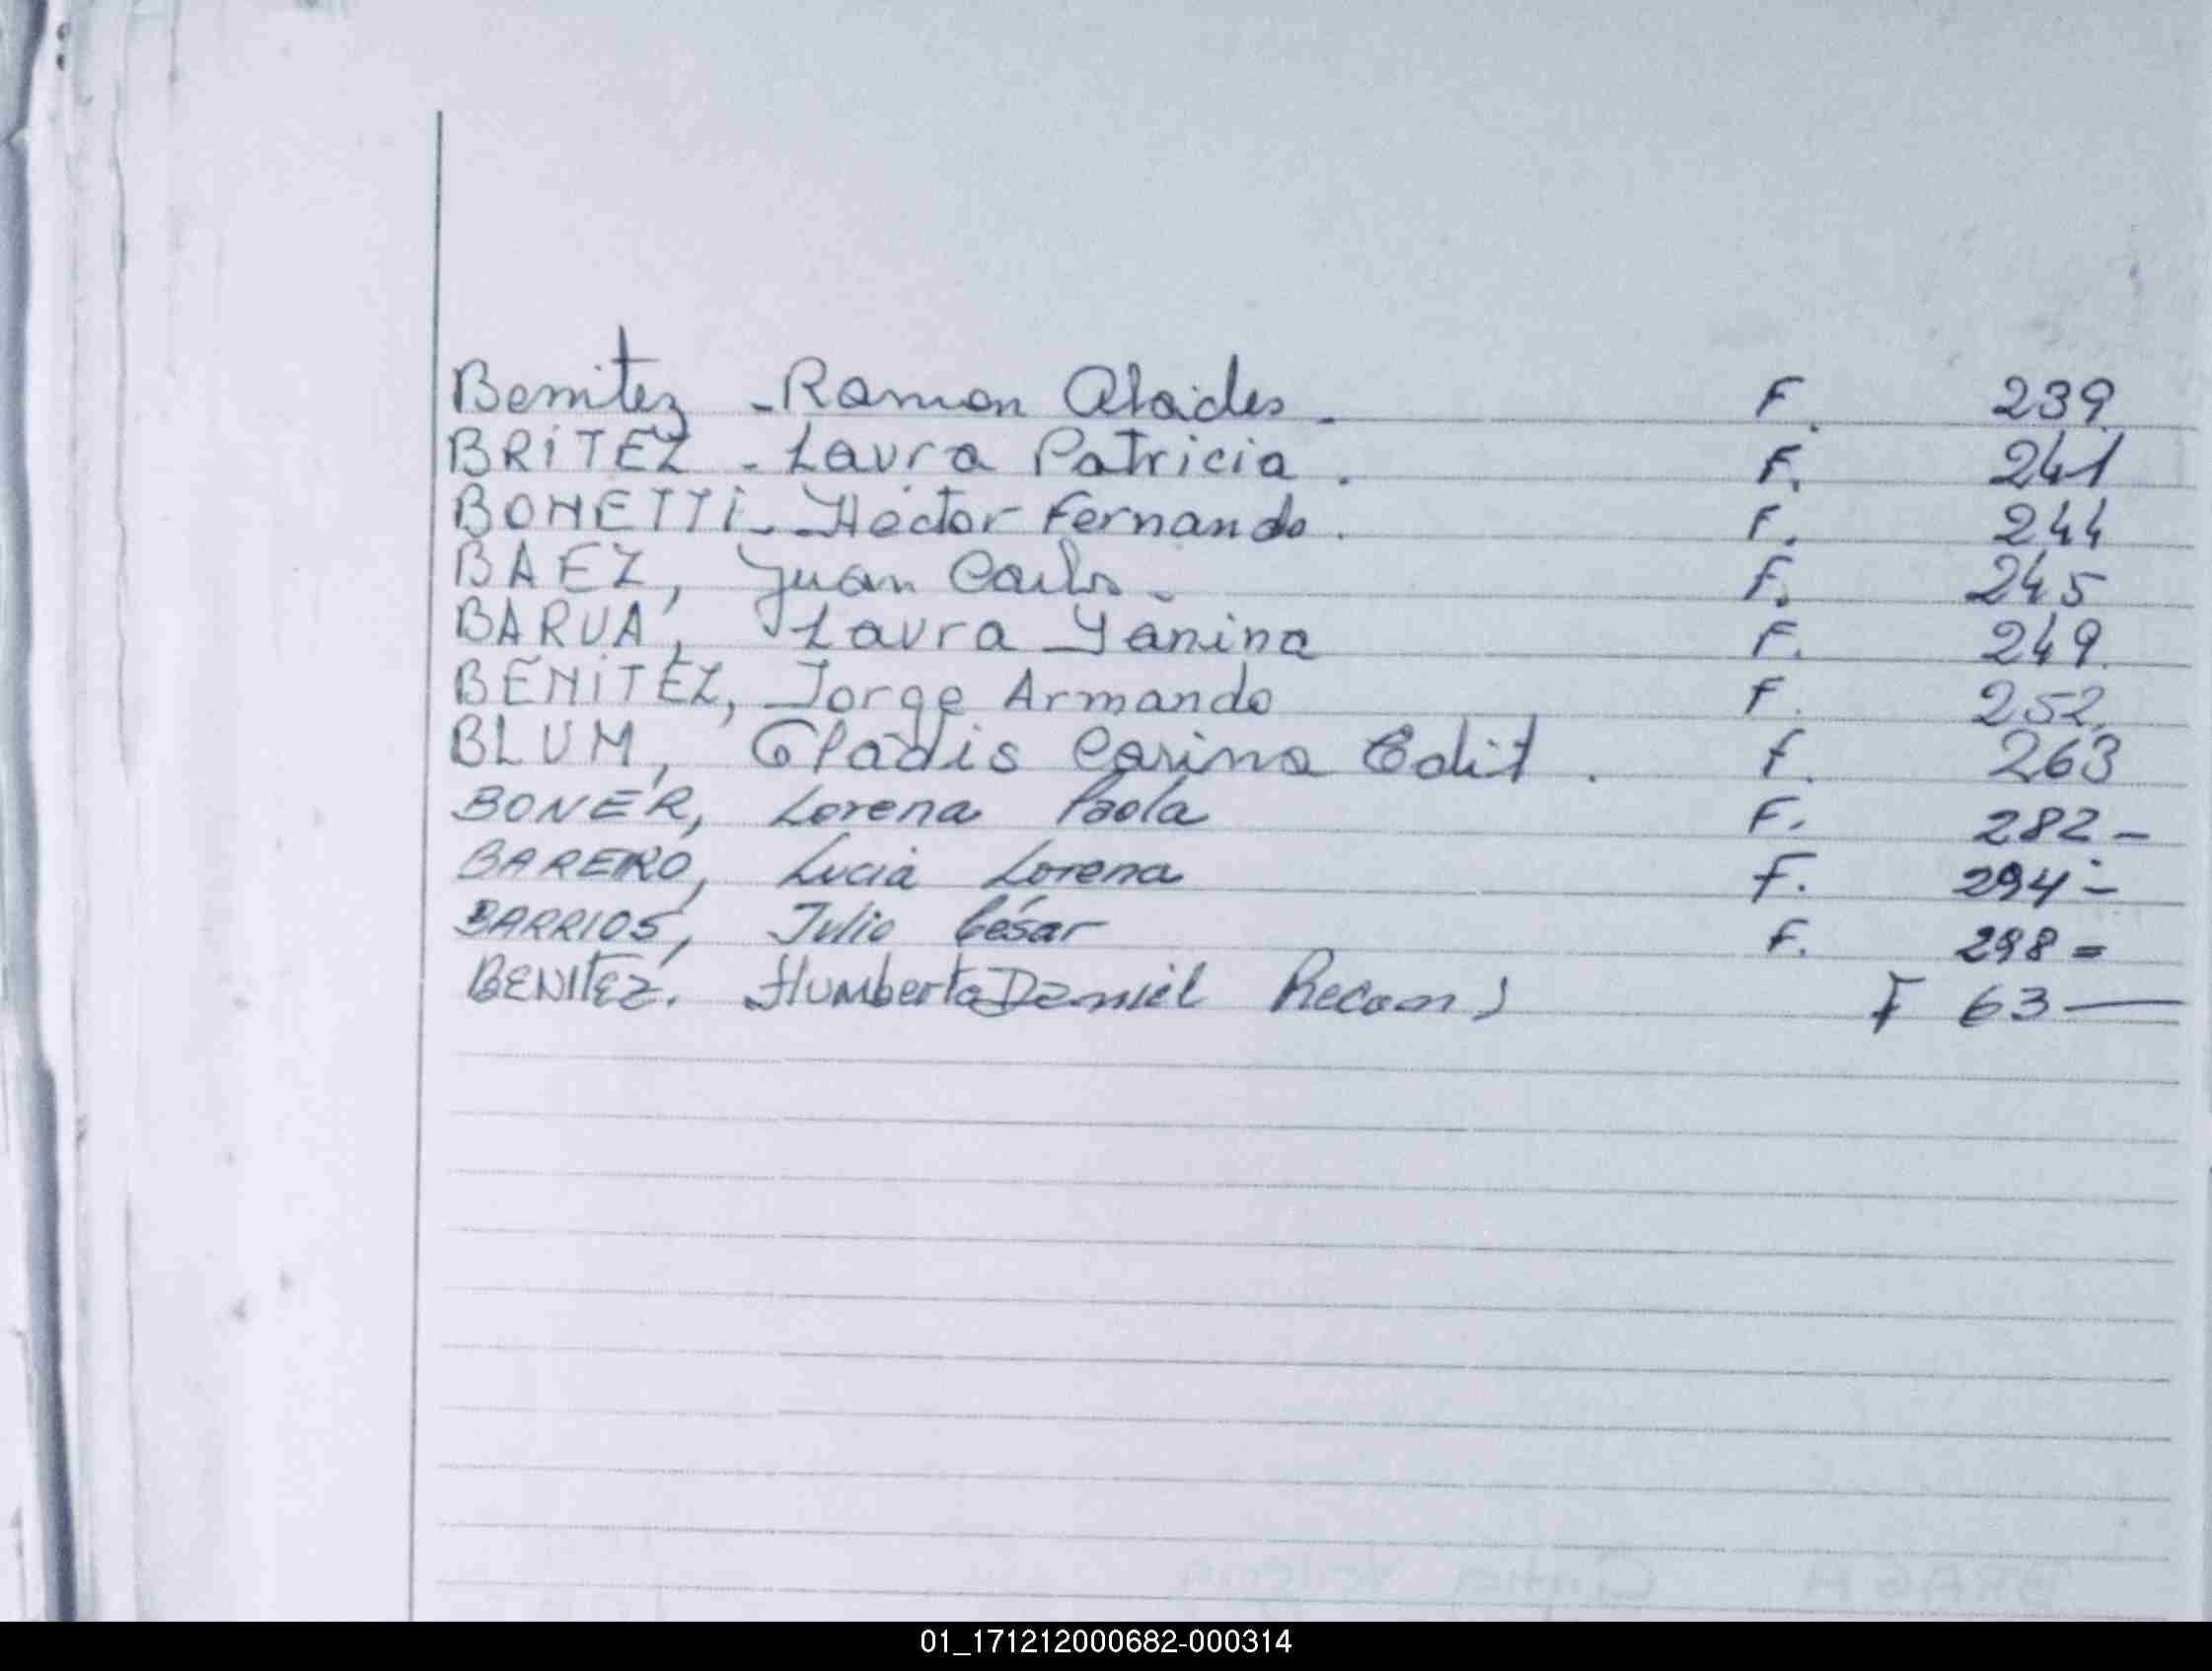 Benitez - Ramon Alcides. F. 239
BRITEZ - Laura Patricia. F. 241
BONETTI - Héctor Fernando. F. 244
BAEZ, Juan Carlos - F. 245
BARUA, Laura Yanina F. 249
BENITEZ, Jorge Armando F. 252
BLUM, Gladis Carina Edit. F. 263
BONER, Lorena Paola F. 282-
BAREIRO, Lucia Lorena F. 294-
BARRIOS, Julio César F. 298=
BENITEZ. Humberto Daniel Recon) F 63—
01_171212000682-000314